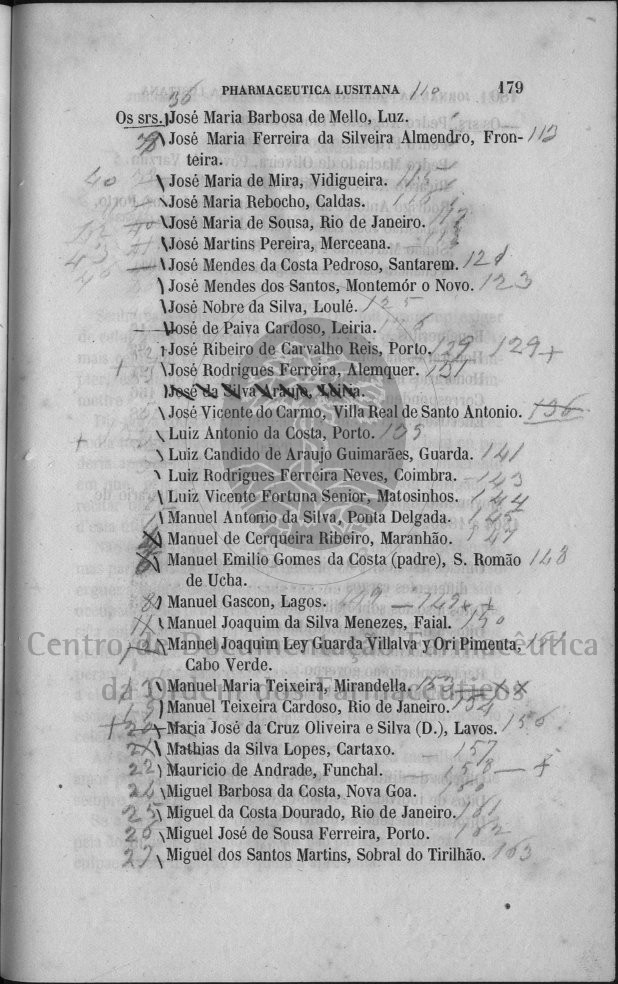 PHARMACEUTICA LUSITANA 110 179
36
Os srs. José Maria Barbosa de Mello, Luz.
José Maria Ferreira da Silveira Almendro, Fron- 113
teira.
40 José Maria de Mira, Vidigueira. 115
José Maria Rebocho, Caldas.
José Maria de Sousa, Rio de Janeiro.
José Martins Pereira, Merceana.
José Mendes da Costa Pedroso, Santarem.
José Mendes dos Santos, Montemór o Novo. 123
José Nobre da Silva, Loulé. 125
José de Paiva Cardoso, Leiria.
José Ribeiro de Carvalho Reis, Porto. 129 129+
+ José Rodrigues Ferreira, Alemquer. 131
José da Silva Araujo, Leiria.
José Vicente do Carmo, Villa Real de Santo Antonio. 136
+ Luiz Antonio da Costa, Porto. 139
Luiz Candido de Araujo Guimarães, Guarda. 141
Luiz Rodrigues Ferreira Neves, Coimbra. 143
Luiz Vicente Fortuna Senior, Matosinhos. 144
Manuel Antonio da Silva, Ponta Delgada.
Manuel de Cerqueira Ribeiro, Maranhão. 147
Manuel Emilio Gomes da Costa (padre), S. Romão 148
de Ucha.
Manuel Gascon, Lagos. 149 — 149 + +
Manuel Joaquim da Silva Menezes, Faial. 150
Centro de Documentação Farmacêutica
Manuel Joaquim Ley Guarda Villalva y Ori Pimenta,
Cabo Verde.
da Ordem dos Farmacêuticos
Manuel Maria Teixeira, Mirandella.
Manuel Teixeira Cardoso, Rio de Janeiro. 154
Maria José da Cruz Oliveira e Silva (D.), Lavos. 156
21 Mathias da Silva Lopes, Cartaxo. 157
22 Mauricio de Andrade, Funchal. 158 — +
24 Miguel Barbosa da Costa, Nova Goa.
25 Miguel da Costa Dourado, Rio de Janeiro. 161
26 Miguel José de Sousa Ferreira, Porto. 162
27 Miguel dos Santos Martins, Sobral do Tirilhão. 163